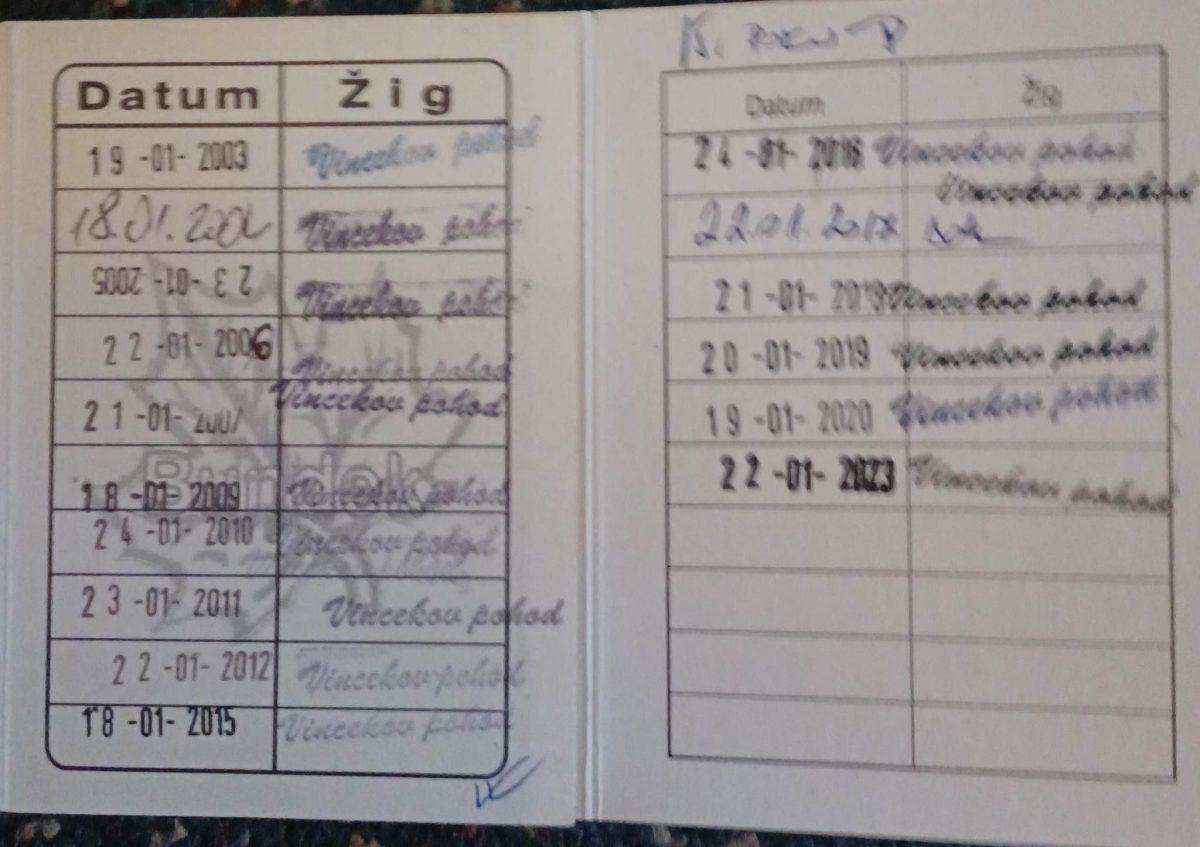 Datum Žig
19 -01- 2003 Vincekov pohod
18.01.2004 Vincekov pohod
23 -01- 2005 Vincekov pohod
22 -01- 2006 Vincekov pohod
21 -01- 2007 Vincekov pohod
Bundek
18 -01- 2009 Vincekov pohod
24 -01- 2010 Vincekov pohod
23 -01- 2011 Vincekov pohod
22 -01- 2012 Vincekov pohod
18 -01- 2015 Vincekov pohod
K.
Datum Žig
24 -01- 2016 Vincekov pohod
Vincekov pohod
22.01.
21 -01- Vincekov pohod
20 -01- 2019 Vincekov pohod
19 -01- 2020 Vincekov pohod
22 -01- 2023 Vincekov pohod